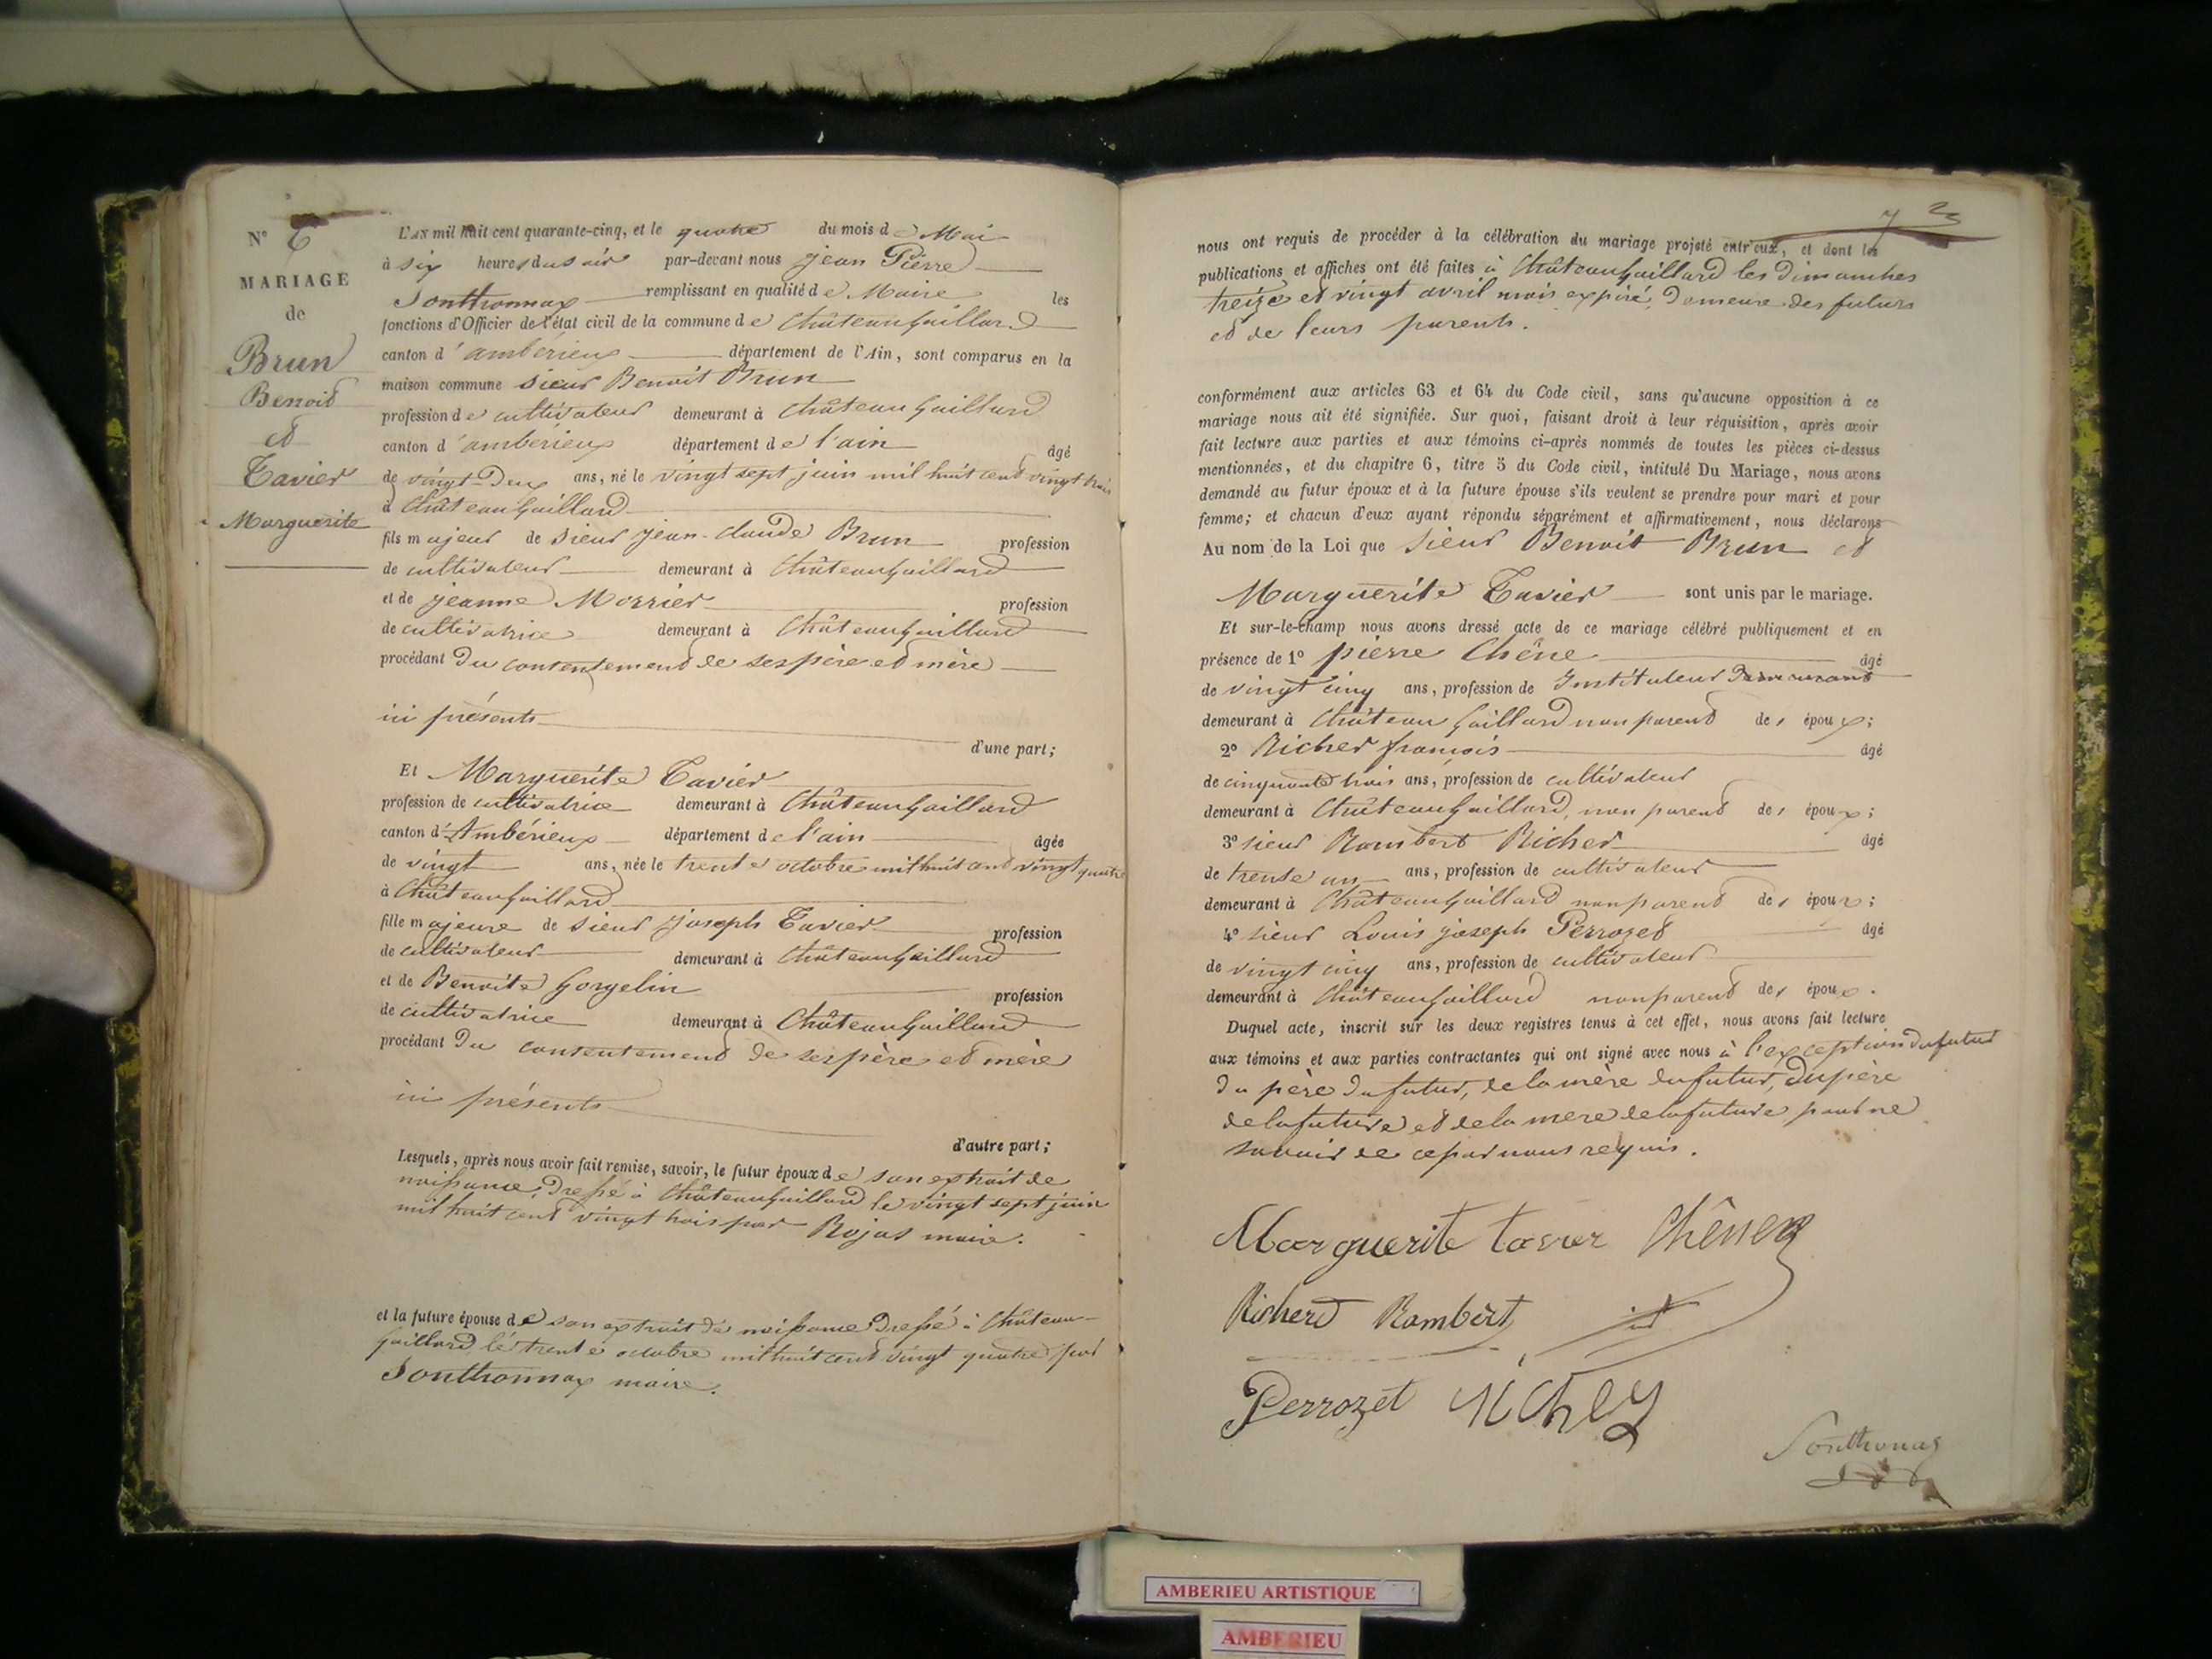 N° 6
MARIAGE
de
Brun
Benoit
et
Tavier
Marguerite
L'AN mil huit cent quarante-cinq, et le quatre du mois de Mai
à six heures du soir par-devant nous jean Pierre
Sonthonnax remplissant en qualité de Maire les
fonctions d'Officier de l'état civil de la commune de Châteaugaillard
canton d'ambérieux département de l'Ain, sont comparus en la
maison commune sieur Benoit Brun
profession de cultivateur demeurant à Château Gaillard
canton d'ambérieux département de l'ain âgé
de vingt-Deux ans, né le vingt sept juin mil huit cent vingt trois
à Châteaugaillard
fils majeur de sieur jean-claude Brun profession
de cultivateur demeurant à Châteaugaillard
et de jeanne Morrier profession
de cultivatrice demeurant à Châteaugaillard
procédant Du consentement de ses père et mère
ici présents
d'une part;
Et Marguerite Tavier
profession de cultivatrice demeurant à Châteaugaillard
canton d'Ambérieux département de l'ain âgée
de vingt ans, née le trente octobre mil huit cent vingt quatre
à Châteaugaillard
fille majeure de sieur joseph Tavier profession
de cultivateur demeurant à Châteaugaillard
et de Benoite Gorgelin profession
de cultivatrice demeurant à Châteaugaillard
procédant Du consentement de ses père et mère
ici présents
d'autre part;
Lesquels, après nous avoir fait remise, savoir, le futur époux de son extrait de
naissance, Dressé à Châteaugaillard le vingt sept juin
mil huit cent vingt trois par Rojas maire.
et la future épouse de son extrait de naissance Dressé à Château-
gaillard le trente octobre mil huit cent vingt quatre par
Sonthonnax maire.
nous ont requis de procéder à la célébration du mariage projeté entr'eux, et dont les
publications et affiches ont été faites à Châteaugaillard les Dimanches
treize et vingt avril mois expiré, Domeure des futurs
et de leurs parents.
conformément aux articles 63 et 64 du Code civil, sans qu'aucune opposition à ce
mariage nous ait été signifiée. Sur quoi, faisant droit à leur réquisition, après avoir
fait lecture aux parties et aux témoins ci-après nommés de toutes les pièces ci-dessus
mentionnées, et du chapitre 6, titre 5 du Code civil, intitulé Du Mariage, nous avons
demandé au futur époux et à la future épouse s'ils veulent se prendre pour mari et pour
femme; et chacun d'eux ayant répondu séparément et affirmativement, nous déclarons
Au nom de la Loi que sieur Benoit Brun et
Marguerite Tavier sont unis par le mariage.
Et sur-le-champ nous avons dressé acte de ce mariage célébré publiquement et en
présence de 1° pierre Chêne âgé
de vingt cinq ans, profession de Instituteur
demeurant à Château Gaillard non parent des époux;
2° Richer françois âgé
de cinquante trois ans, profession de cultivateur
demeurant à Châteaugaillard, non parent des époux;
3° sieur Rambert Richer âgé
de trente un ans, profession de cultivateur
demeurant à Châteaugaillard non parent des époux;
4° sieur Louis joseph Perrozet âgé
de vingt cinq ans, profession de cultivateur
demeurant à Châteaugaillard non parent des époux.
Duquel acte, inscrit sur les deux registres tenus à cet effet, nous avons fait lecture
aux témoins et aux parties contractantes qui ont signé avec nous à l'exception du futur
Du père Du futur, de la mère du futur, Du père
de la future et de la mère de la future pour ne
savoir de ce par nous requis.
Marguerite tavier Chêne
Richerd Rambert
Perrozet
Sonthonax
AMBERIEU ARTISTIQUE
AMBERIEU